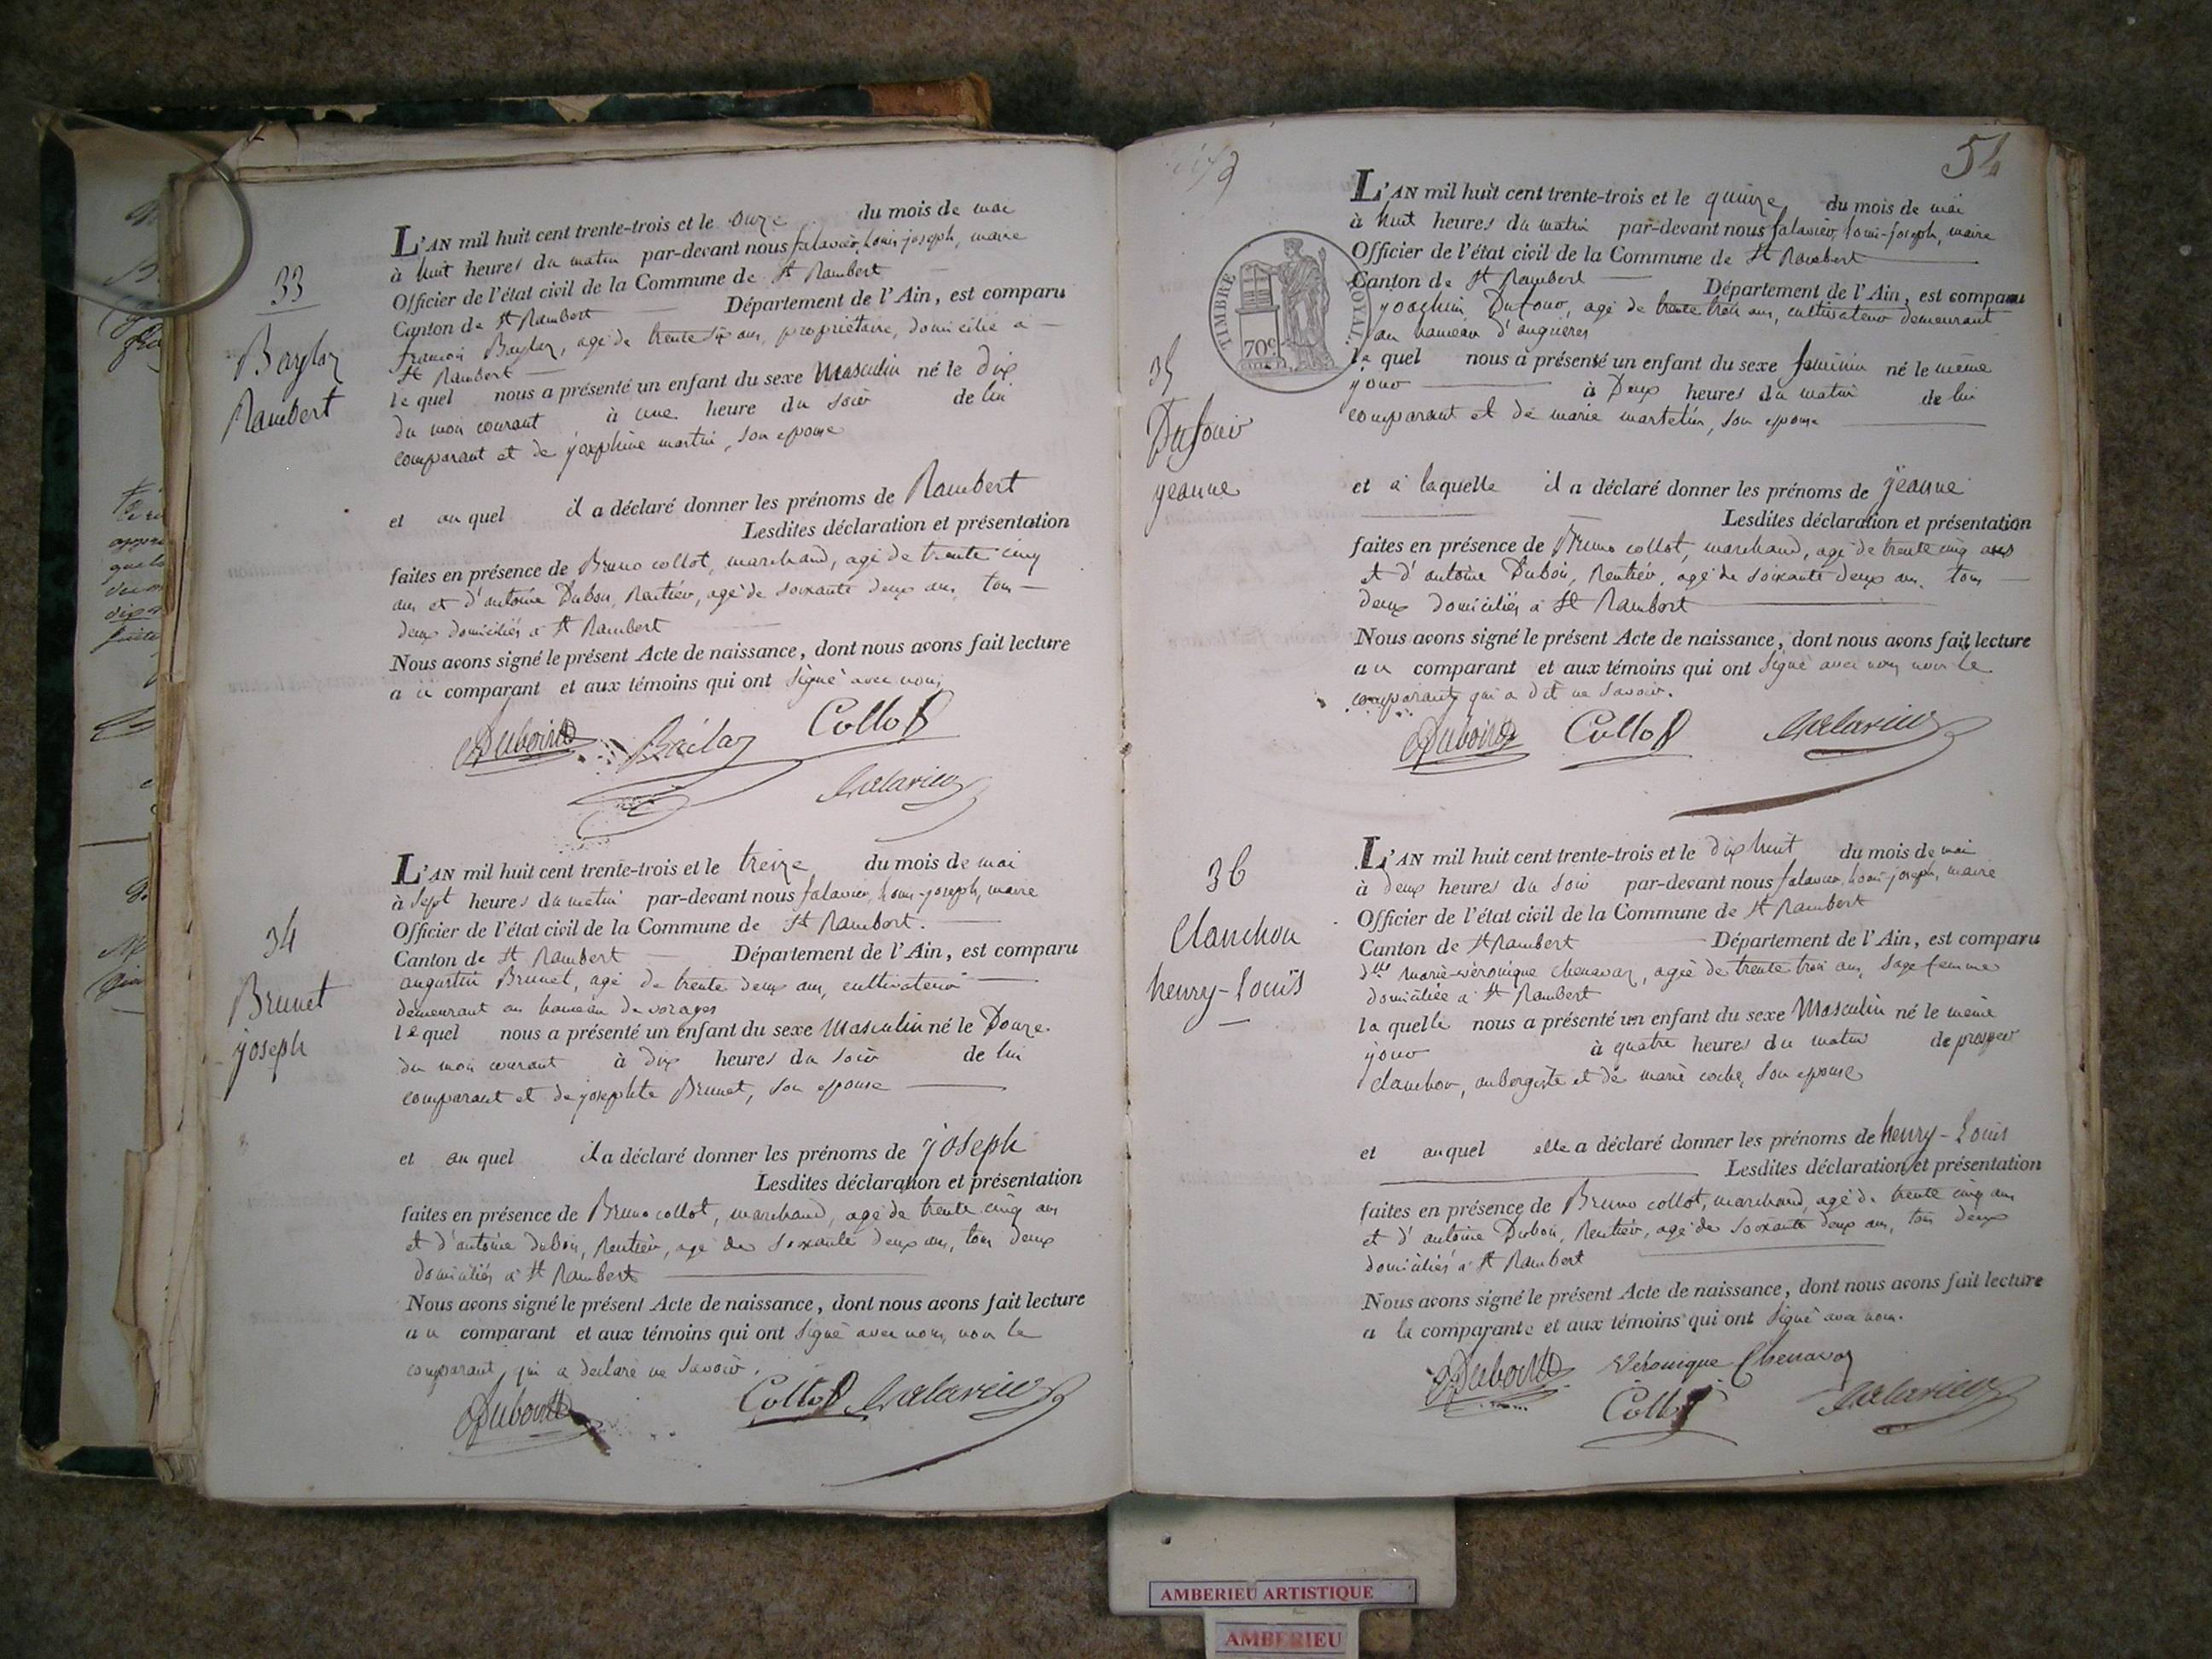 33
Baylaz
Rambert
L'AN mil huit cent trente-trois et le onze du mois de mai
à huit heures du matin par-devant nous falavier, louis joseph, maire
Officier de l'état civil de la Commune de St Rambert
Canton de St Rambert Département de l'Ain, est comparu
françois Baylaz, agé de trente six ans, propriétaire, domicilié à
St Rambert
le quel nous a présenté un enfant du sexe Masculin né le dix
du mois courant à une heure du soir de lui
comparant et de josephine martin, son epouse
et au quel il a déclaré donner les prénoms de Rambert
Lesdites déclaration et présentation
faites en présence de Bruno collot, marchand, agé de trente cinq
ans et d'antoine Dubois, Rentier, agé de soixante deux ans, tous
deux domiciliés à St Rambert
Nous avons signé le présent Acte de naissance, dont nous avons fait lecture
au comparant et aux témoins qui ont signé avec nous
Dubois Bailaz Collot
falavier
34
Brunet
joseph
L'AN mil huit cent trente-trois et le treize du mois de mai
à sept heures du matin par-devant nous falavier, louis-joseph, maire
Officier de l'état civil de la Commune de St Rambert.
Canton de St Rambert Département de l'Ain, est comparu
augustin Brunet, agé de trente deux ans, cultivateur
demeurant au hameau de vorages
le quel nous a présenté un enfant du sexe Masculin né le Douze
du mois courant à dix heures du soir de lui
comparant et de josephte Brunet, son epouse
et au quel il a déclaré donner les prénoms de joseph
Lesdites déclaration et présentation
faites en présence de Bruno collot, marchand, agé de trente cinq ans
et d'antoine dubois, Rentier, agé de soixante deux ans, tous deux
domiciliés à St Rambert
Nous avons signé le présent Acte de naissance, dont nous avons fait lecture
au comparant et aux témoins qui ont signé avec nous, non le
comparant, qui a declaré ne savoir.
Dubois Collot falavier
54
TIMBRE ROYAL
70c
35
Dufour
jeanne
L'AN mil huit cent trente-trois et le quinze du mois de mai
à huit heures du matin par-devant nous falavier, louis-joseph, maire
Officier de l'état civil de la Commune de St Rambert
Canton de St Rambert Département de l'Ain, est comparu
joachim Dufour, agé de trente trois ans, cultivateur demeurant
au hameau d'angrieres
le quel nous a présenté un enfant du sexe féminin né le même
jour à Deux heures du matin de lui
comparant et de marie martelin, son epouse
et à laquelle il a déclaré donner les prénoms de jeanne
Lesdites déclaration et présentation
faites en présence de Bruno collot, marchand, agé de trente cinq ans
et d'antoine Dubois, Rentier, agé de soixante deux ans, tous
deux domiciliés à St Rambert
Nous avons signé le présent Acte de naissance, dont nous avons fait lecture
au comparant et aux témoins qui ont signé avec nous, non le
comparant, qui a dit ne savoir.
Dubois Collot falavier
36
Clanchon
henry-Louis
L'AN mil huit cent trente-trois et le dix huit du mois de mai
à deux heures du soir par-devant nous falavier, louis-joseph, maire
Officier de l'état civil de la Commune de St Rambert
Canton de St Rambert Département de l'Ain, est comparu
dlle marie-véronique chenavaz, agée de trente trois ans, sage femme
domiciliée à St Rambert
la quelle nous a présenté un enfant du sexe Masculin né le même
jour à quatre heures du matin de prosper
clanchon, aubergiste et de marie coche, son epouse
et auquel elle a déclaré donner les prénoms de henry-Louis
Lesdites déclaration et présentation
faites en présence de Bruno collot, marchand, agé de trente cinq ans
et d'antoine Dubois, Rentier, agé de soixante deux ans, tous deux
domiciliés à St Rambert
Nous avons signé le présent Acte de naissance, dont nous avons fait lecture
a la comparante et aux témoins qui ont signé avec nous.
Dubois Véronique Chenavaz
Collot falavier
AMBERIEU ARTISTIQUE
AMBERIEU